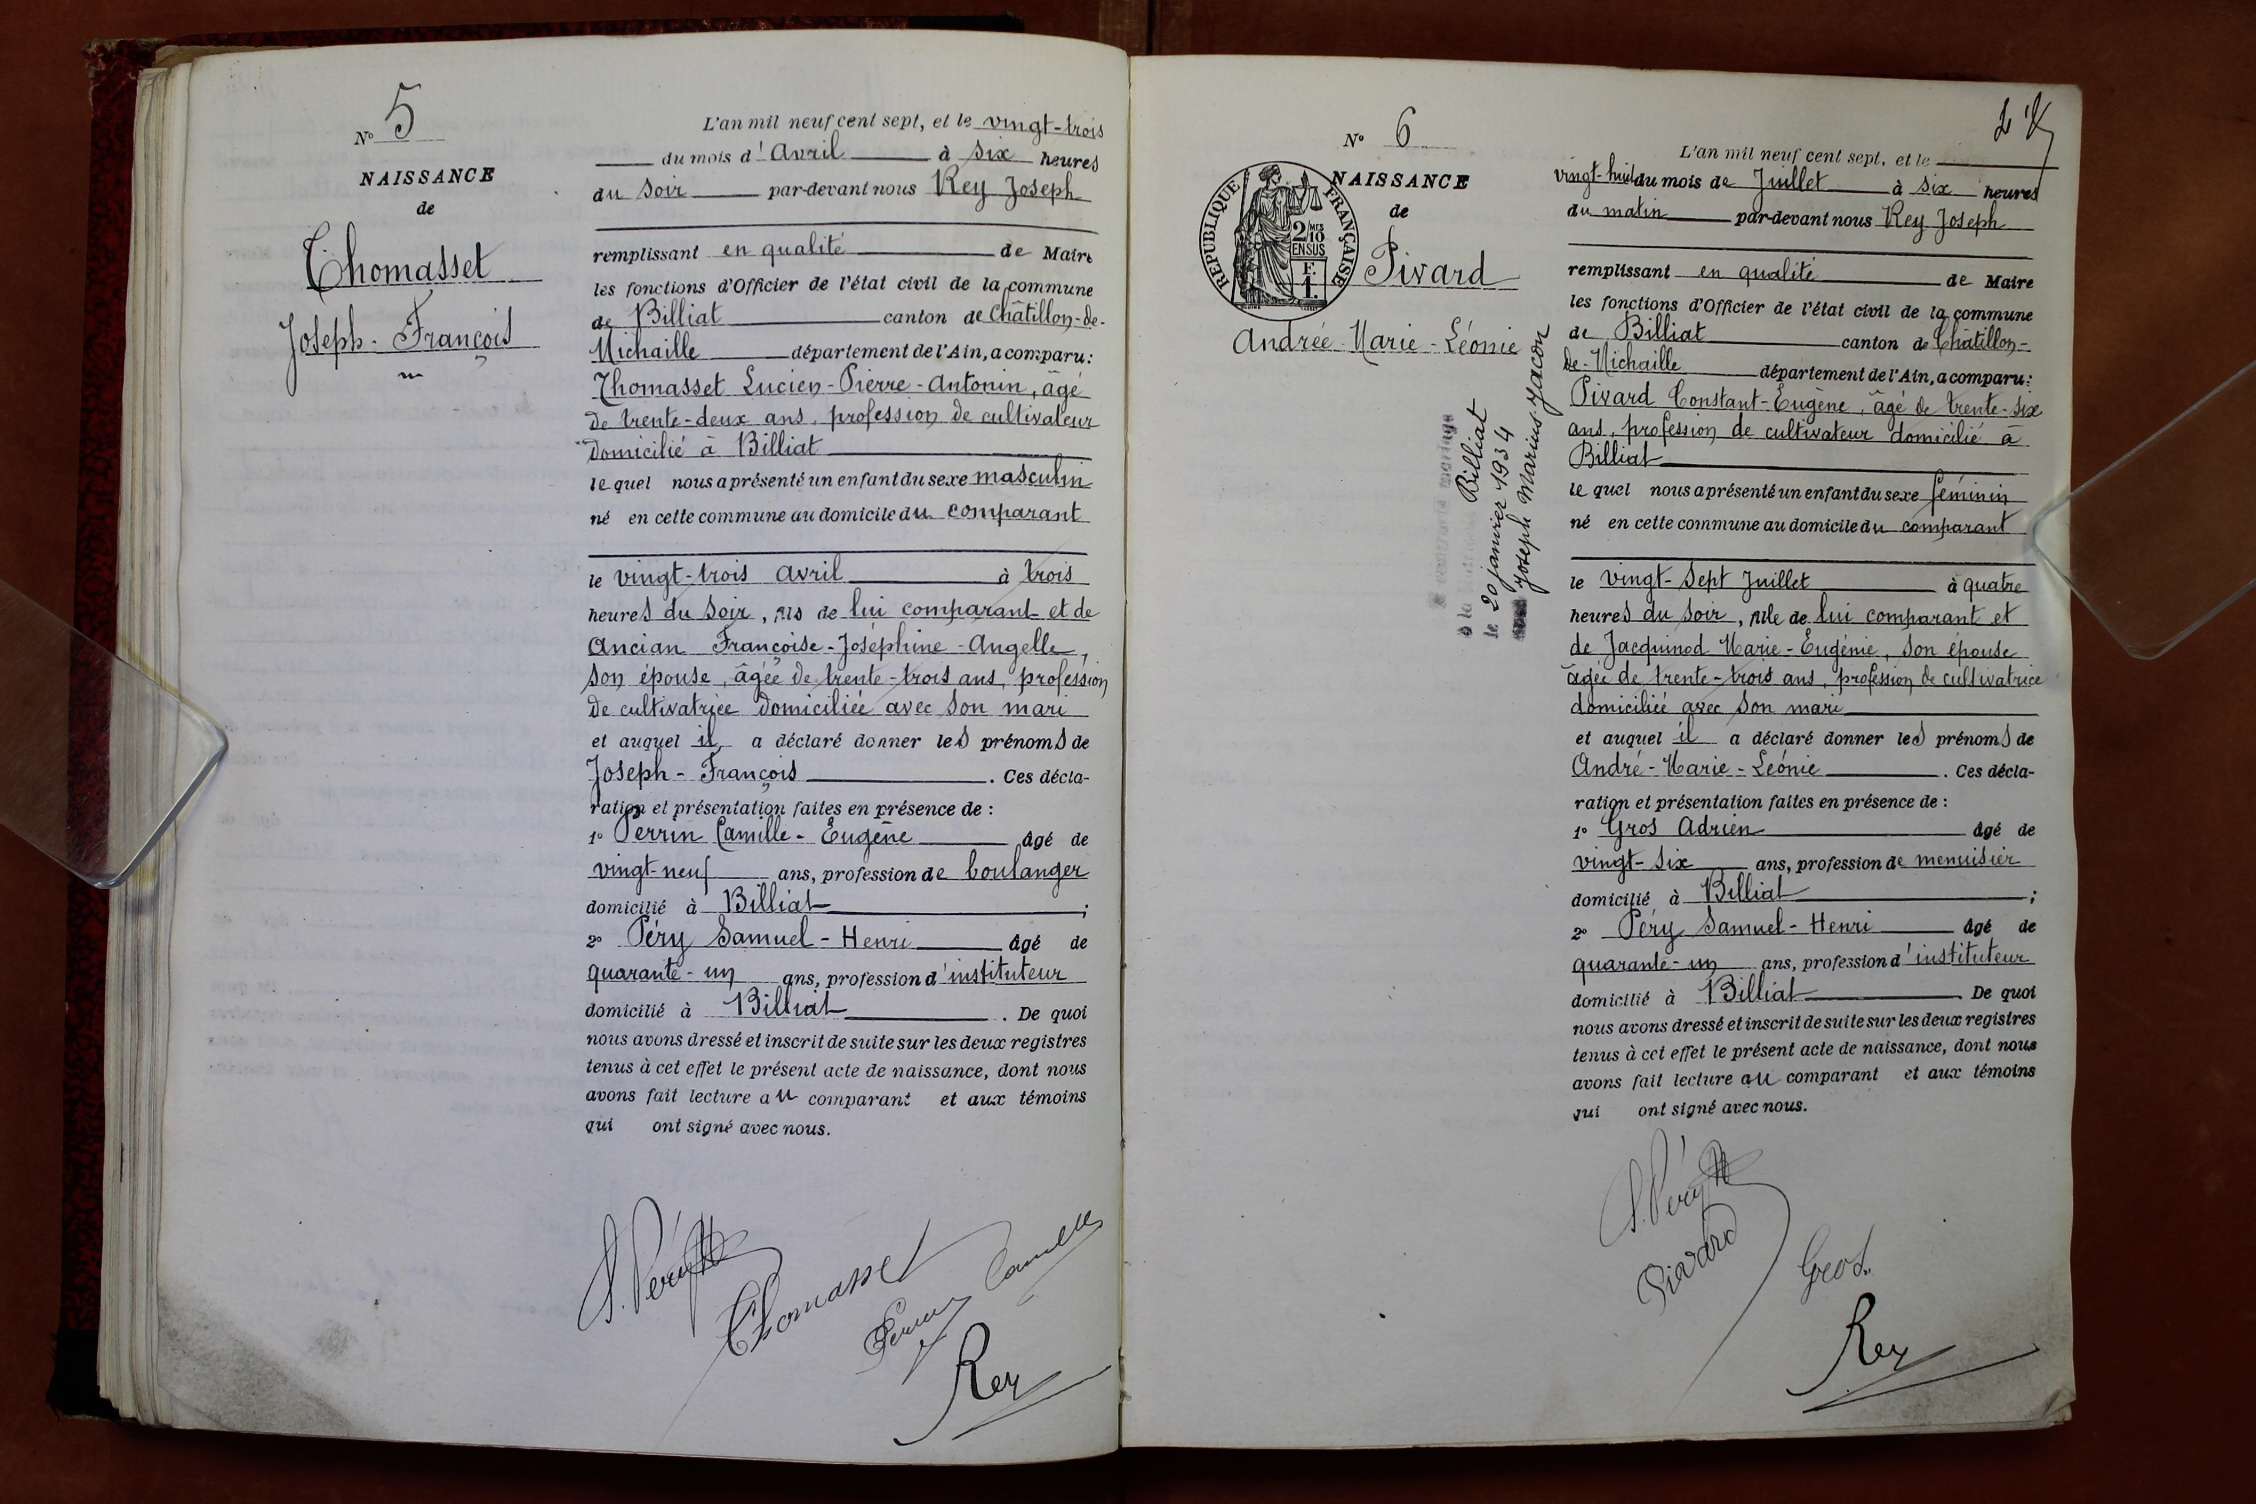 N° 5
NAISSANCE
de
Thomasset
Joseph - François
L'an mil neuf cent sept, et le vingt-trois
du mois d'Avril à six heures
du soir par-devant nous Rey Joseph
remplissant en qualité de Maire
les fonctions d'Officier de l'état civil de la commune
de Billiat canton de Châtillon-de-
Michaille département de l'Ain, a comparu:
Thomasset Lucien-Pierre-Antonin, âgé
de trente-deux ans, profession de cultivateur
domicilié à Billiat
lequel nous a présenté un enfant du sexe masculin
né en cette commune au domicile du comparant
le vingt-trois avril à trois
heures du soir, fils de lui comparant et de
Ancian Françoise-Joséphine-Angelle,
son épouse, âgée de trente-trois ans, profession
de cultivatrice domiciliée avec son mari
et auquel il a déclaré donner les prénoms de
Joseph-François. Ces décla-
ration et présentation faites en présence de :
1° Perrin Camille-Eugène âgé de
vingt-neuf ans, profession de boulanger
domicilié à Billiat ;
2° Péry Samuel-Henri âgé de
quarante-un ans, profession d'instituteur
domicilié à Billiat. De quoi
nous avons dressé et inscrit de suite sur les deux registres
tenus à cet effet le présent acte de naissance, dont nous
avons fait lecture au comparant et aux témoins
qui ont signé avec nous.
S. Péry
Thomasset
Perrin Camille
Rey
N° 6
NAISSANCE
de
RÉPUBLIQUE FRANÇAISE
2 MES
10
EN SUS
F.
1.
Pivard
Andrée-Marie-Léonie
mariage
à la Billiat
le 20 janvier 1934
Joseph Marius Jacon
L'an mil neuf cent sept, et le
vingt-huit du mois de Juillet à six heures
du matin par-devant nous Rey Joseph
remplissant en qualité de Maire
les fonctions d'Officier de l'état civil de la commune
de Billiat canton de Châtillon-
de-Michaille département de l'Ain, a comparu:
Pivard Constant-Eugène, âgé de trente-six
ans, profession de cultivateur domicilié à
Billiat
lequel nous a présenté un enfant du sexe féminin
né en cette commune au domicile du comparant
le vingt-sept Juillet à quatre
heures du soir, fille de lui comparant et
de Jacquinod Marie-Eugénie, son épouse
âgée de trente-trois ans, profession de cultivatrice
domiciliée avec son mari
et auquel il a déclaré donner les prénoms de
André-Marie-Léonie. Ces décla-
ration et présentation faites en présence de :
1° Gros Adrien âgé de
vingt-six ans, profession de menuisier
domicilié à Billiat ;
2° Péry Samuel-Henri âgé de
quarante-un ans, profession d'instituteur
domicilié à Billiat. De quoi
nous avons dressé et inscrit de suite sur les deux registres
tenus à cet effet le présent acte de naissance, dont nous
avons fait lecture au comparant et aux témoins
qui ont signé avec nous.
S. Péry
Pivard
Gros
Rey